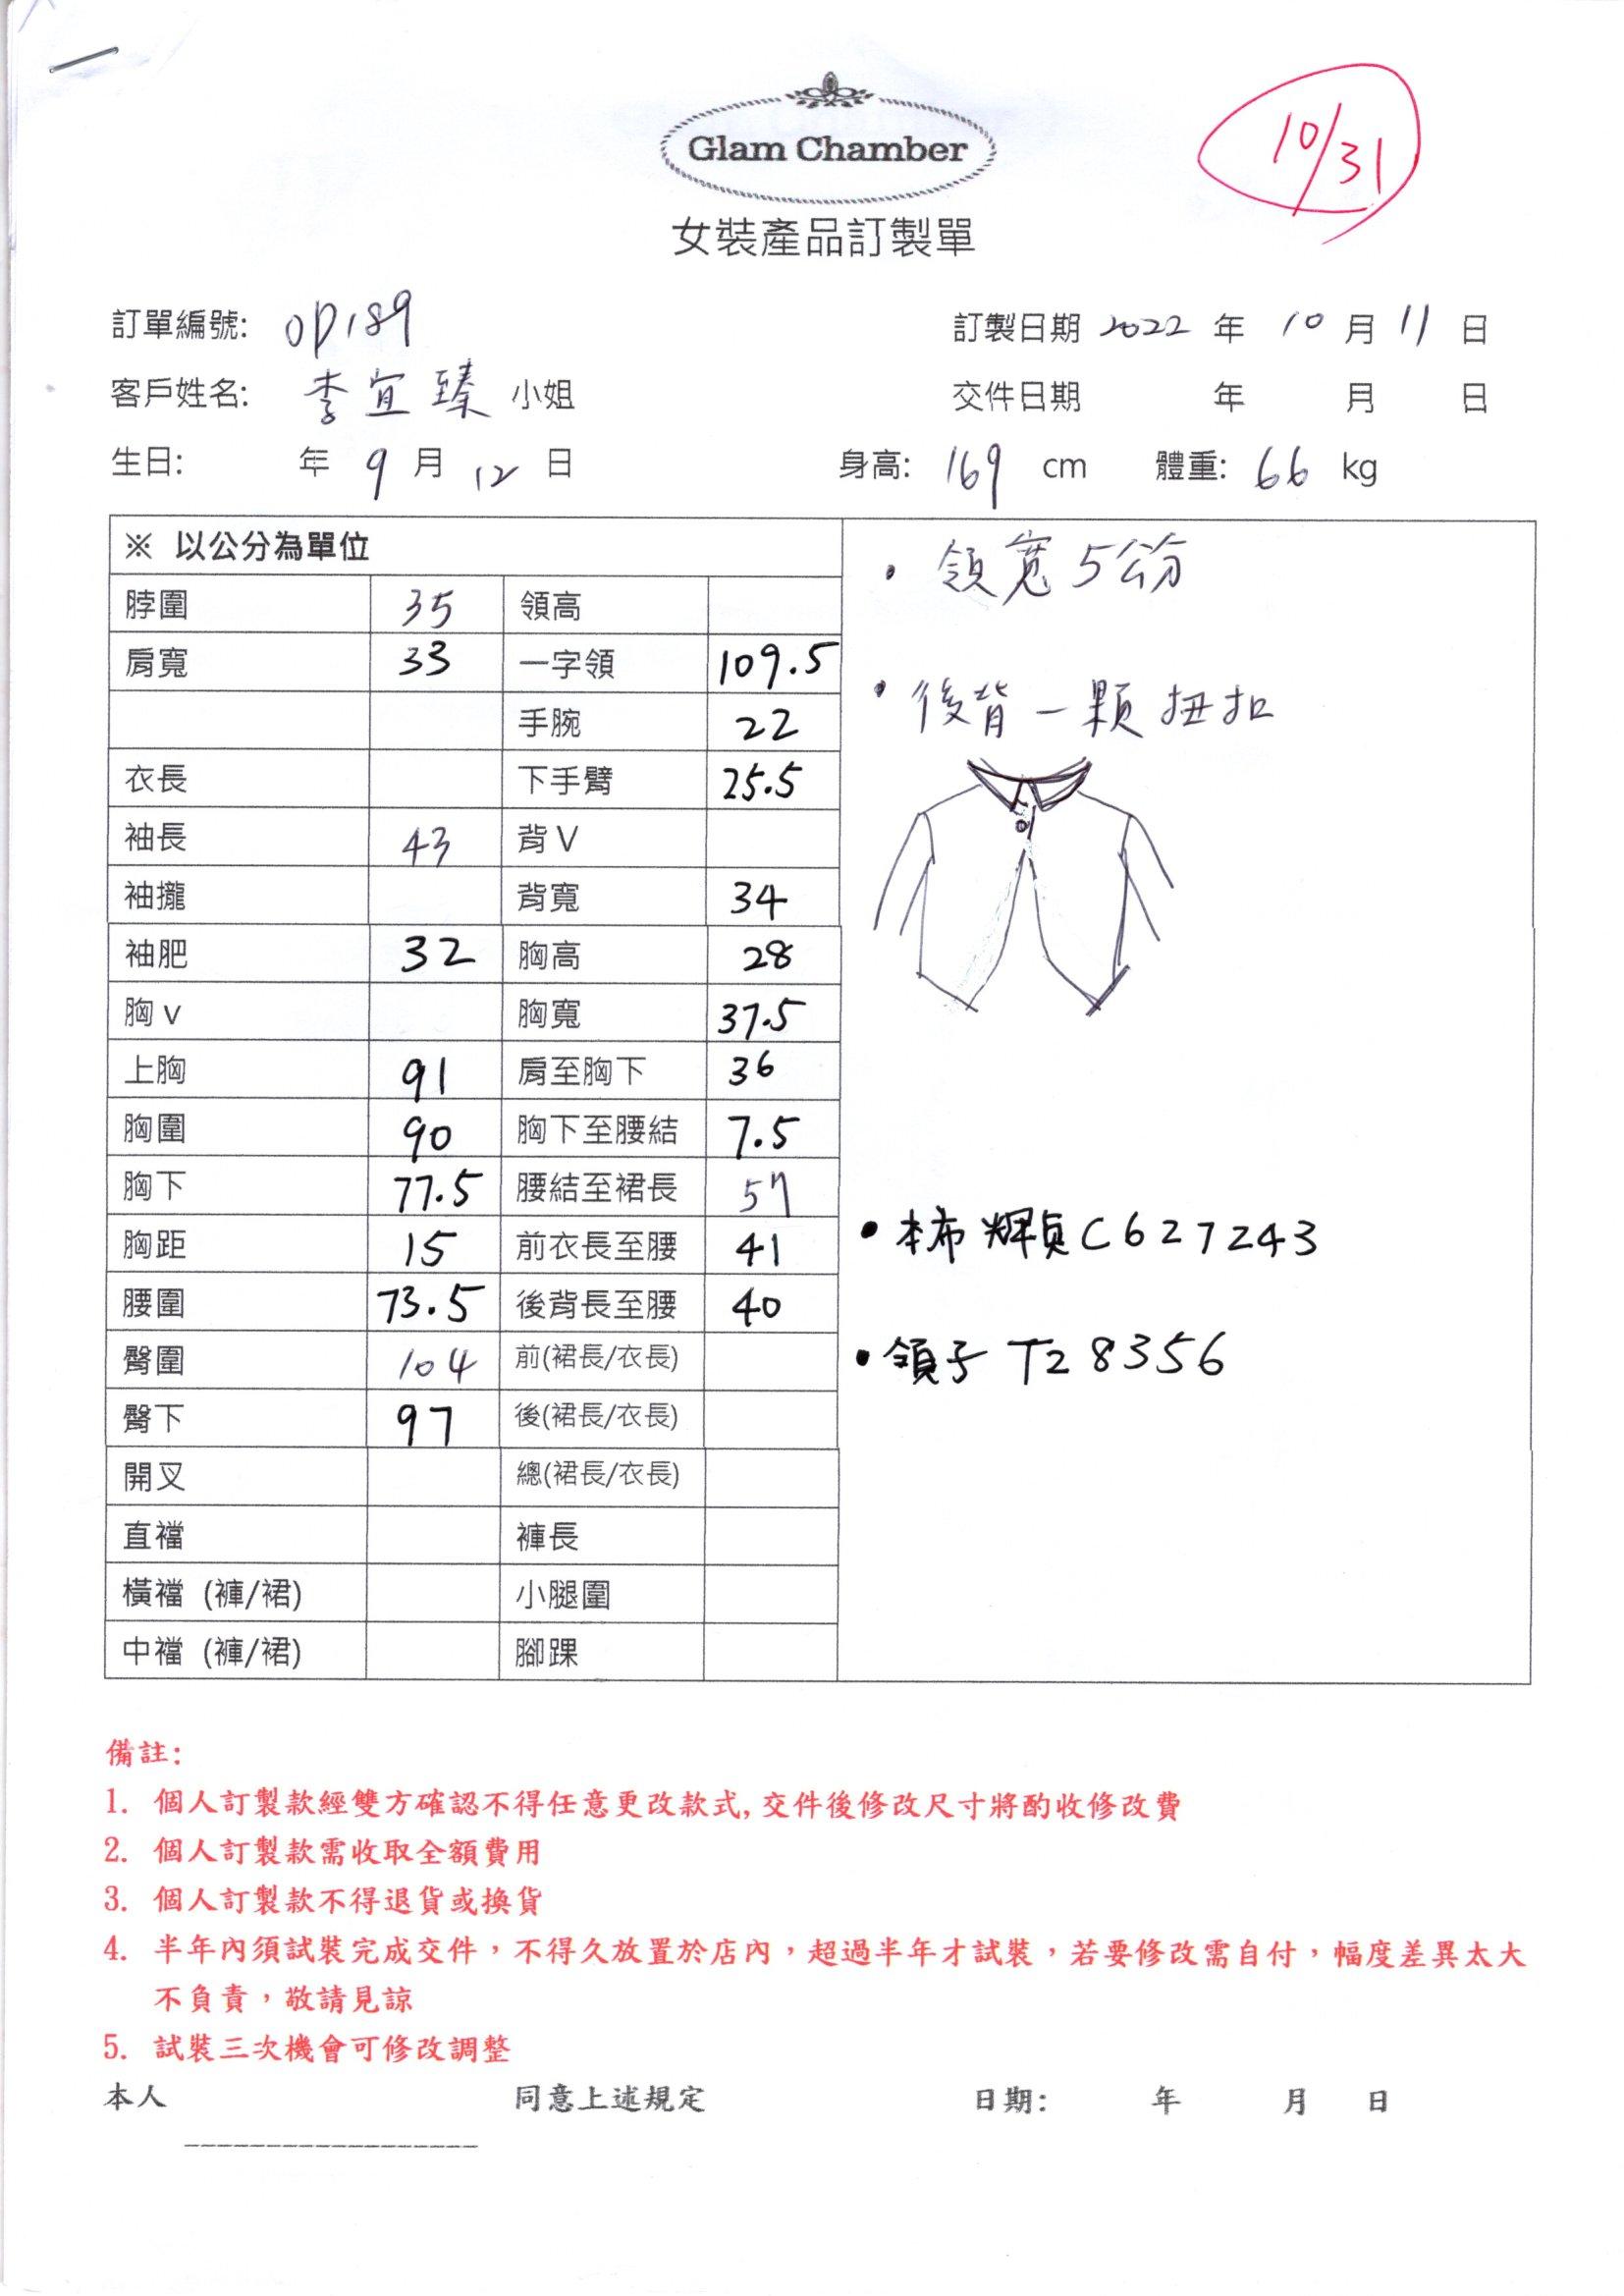 Glam Chamber
10/31
女裝產品訂製單
訂單編號: OP189
訂製日期 2022 年 10 月 11 日
客戶姓名: 李宜臻 小姐
交件日期 年 月 日
生日: 年 9 月 12 日 身高: 169 cm 體重: 66 kg
※ 以公分為單位
脖圍 35 領高
肩寬 33 一字領 109.5
手腕 22
衣長 下手臂 25.5
袖長 43 背V
袖攏 背寬 34
袖肥 32 胸高 28
胸v 胸寬 37.5
上胸 91 肩至胸下 36
胸圍 90 胸下至腰結 7.5
胸下 77.5 腰結至裙長 57
胸距 15 前衣長至腰 41
腰圍 73.5 後背長至腰 40
臀圍 104 前(裙長/衣長)
臀下 97 後(裙長/衣長)
開叉 總(裙長/衣長)
直襠 褲長
橫襠 (褲/裙) 小腿圍
中襠 (褲/裙) 腳踝
• 領寬5公分
• 後背一顆扭扣
• 本布 輝貞C627243
• 領子 T28356
備註:
1. 個人訂製款經雙方確認不得任意更改款式,交件後修改尺寸將酌收修改費
2. 個人訂製款需收取全額費用
3. 個人訂製款不得退貨或換貨
4. 半年內須試裝完成交件，不得久放置於店內，超過半年才試裝，若要修改需自付，幅度差異太大
不負責，敬請見諒
5. 試裝三次機會可修改調整
本人 同意上述規定 日期: 年 月 日